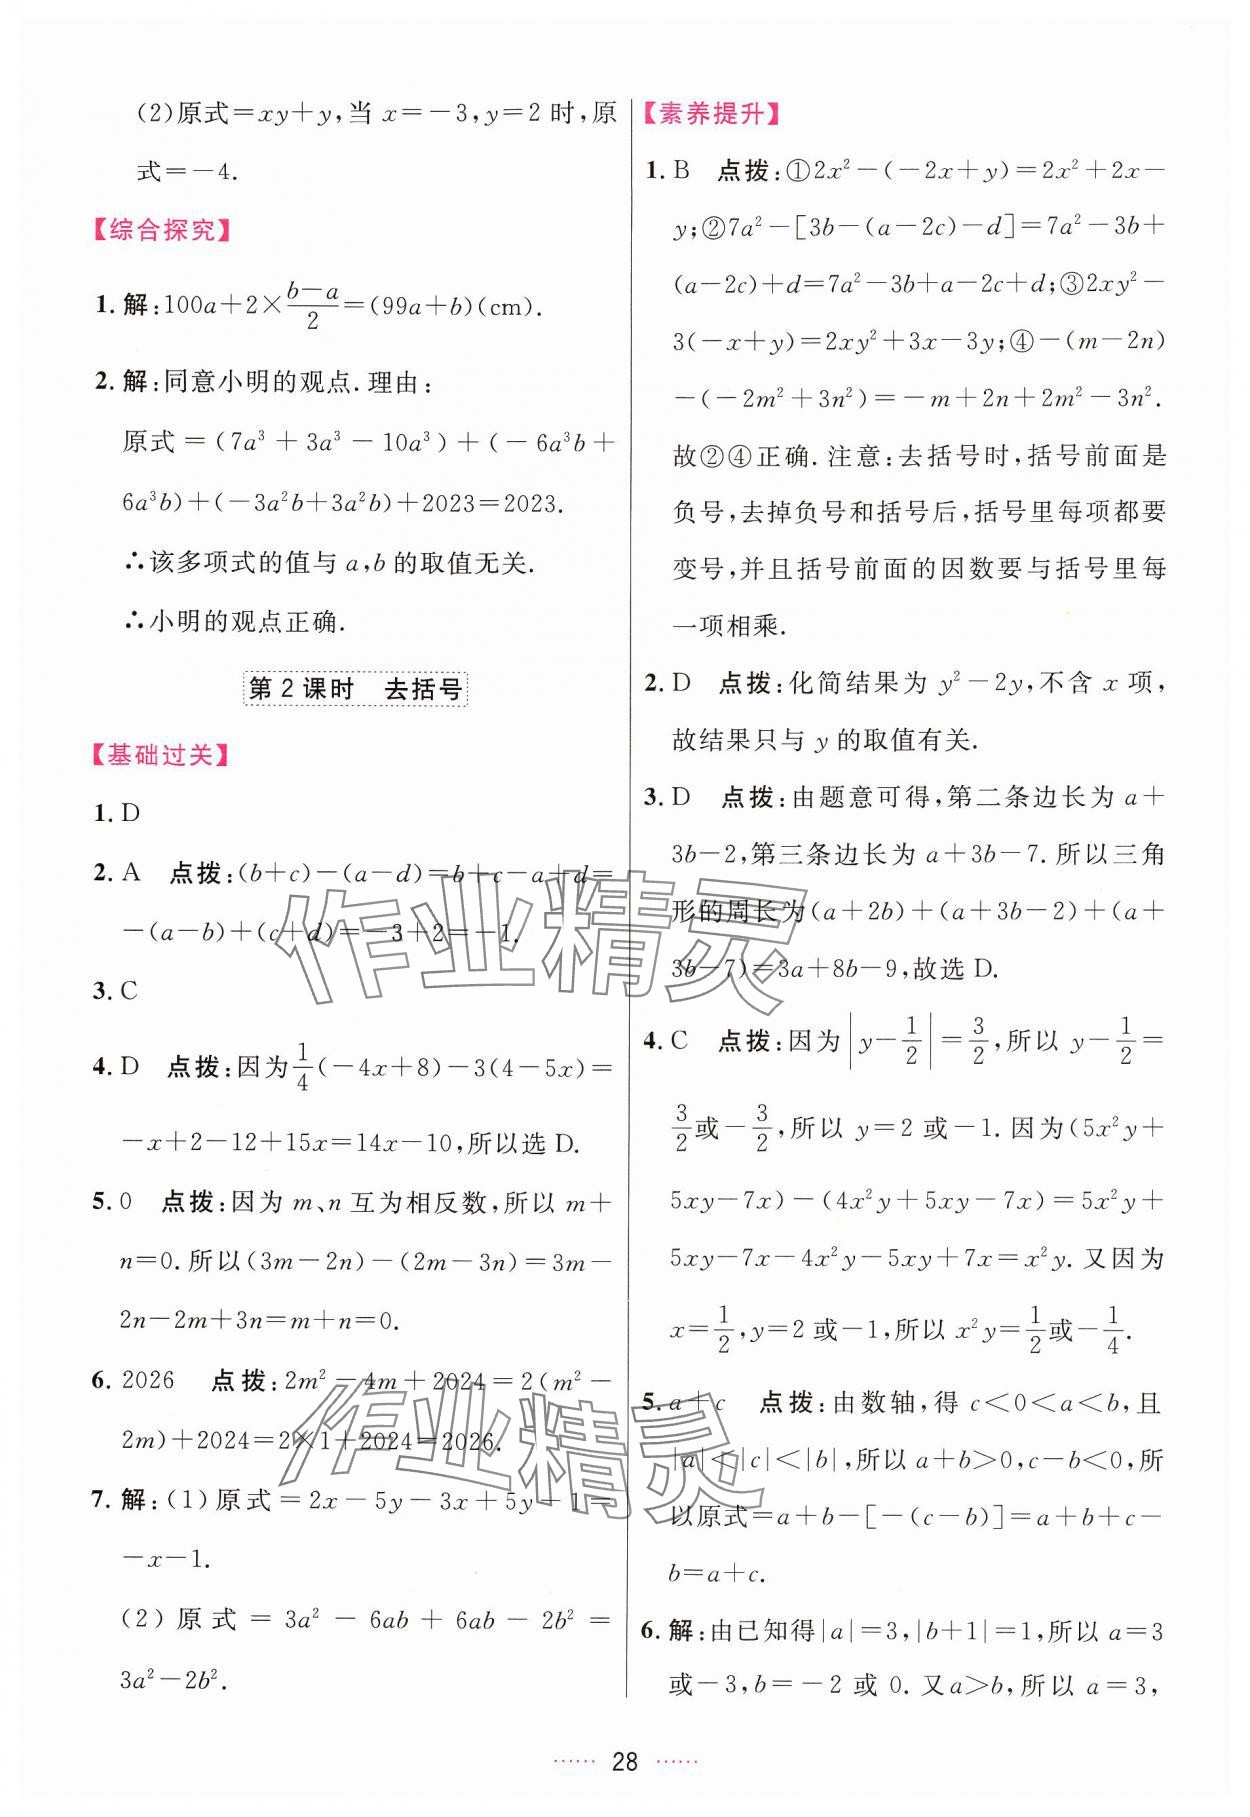 (2)原式=xy+y,当 x=-3,y=2 时,原
式=-4.
【综合探究】
1.解:100a+2×\frac{b-a}{2}=(99a+b)(cm).
2.解:同意小明的观点.理由:
原式=(7a³+3a³-10a³)+(-6a³b+
6a³b)+(-3a²b+3a²b)+2023=2023.
∴该多项式的值与 a,b 的取值无关.
∴小明的观点正确.
第2课时 去括号
【基础过关】
1.D
2.A 点拨:(b+c)-(a-d)=b+c-a+d=
-(a-b)+(c+d)=-3+2=-1.
3.C
4.D 点拨:因为\frac{1}{4}(-4x+8)-3(4-5x)=
-x+2-12+15x=14x-10,所以选 D.
5.0 点拨:因为 m、n 互为相反数,所以 m+
n=0.所以(3m-2n)-(2m-3n)=3m-
2n-2m+3n=m+n=0.
6.2026 点拨:2m²-4m+2024=2(m²-
2m)+2024=2×1+2024=2026.
7.解:(1)原式=2x-5y-3x+5y-1=
-x-1.
(2)原式=3a²-6ab+6ab-2b²=
3a²-2b².
【素养提升】
1.B 点拨:①2x²-(-2x+y)=2x²+2x-
y;②7a²-[3b-(a-2c)-d]=7a²-3b+
(a-2c)+d=7a²-3b+a-2c+d;③2xy²-
3(-x+y)=2xy²+3x-3y;④-(m-2n)
-(-2m²+3n²)=-m+2n+2m²-3n².
故②④正确.注意:去括号时,括号前面是
负号,去掉负号和括号后,括号里每项都要
变号,并且括号前面的因数要与括号里每
一项相乘.
2.D 点拨:化简结果为 y²-2y,不含 x 项,
故结果只与 y 的取值有关.
3.D 点拨:由题意可得,第二条边长为 a+
3b-2,第三条边长为 a+3b-7.所以三角
形的周长为(a+2b)+(a+3b-2)+(a+
3b-7)=3a+8b-9,故选 D.
4.C 点拨:因为|y-\frac{1}{2}|=\frac{3}{2},所以 y-\frac{1}{2}=
\frac{3}{2}或-\frac{3}{2},所以 y=2 或-1.因为(5x²y+
5xy-7x)-(4x²y+5xy-7x)=5x²y+
5xy-7x-4x²y-5xy+7x=x²y.又因为
x=\frac{1}{2},y=2 或-1,所以 x²y=\frac{1}{2}或-\frac{1}{4}.
5.a+c 点拨:由数轴,得 c<0<a<b,且
|a|<|c|<|b|,所以 a+b>0,c-b<0,所
以原式=a+b-[-(c-b)]=a+b+c-
b=a+c.
6.解:由已知得|a|=3,|b+1|=1,所以 a=3
或-3,b=-2 或 0.又 a>b,所以 a=3,
作业精灵
作业精灵
······ 28 ······